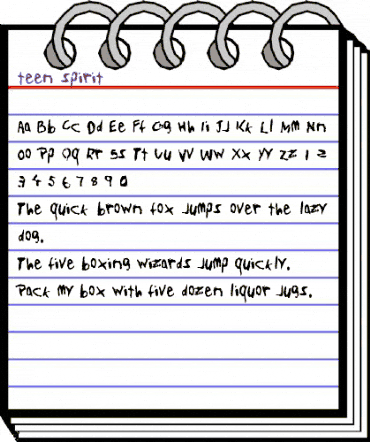 teen spirit
Aa Bb Cc Dd Ee Ff Gg Hh Ii JJ Kk Ll Mm Nn
Oo Pp Qq Rr Ss Tt Uu Vv Ww Xx Yy Zz 1 2
3 4 5 6 7 8 9 0
The quick brown fox jumps over the lazy
dog.
The five boxing wizards jump quickly.
Pack my box with five dozen liquor jugs.